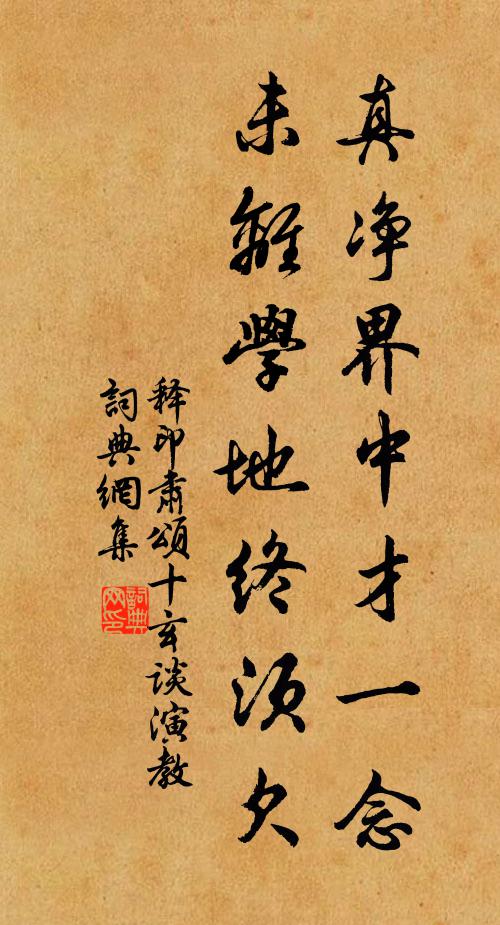 真净界中才一念
未離學地終須欠
释印肅頌十玄談演教
詞典網集
詞典
网印